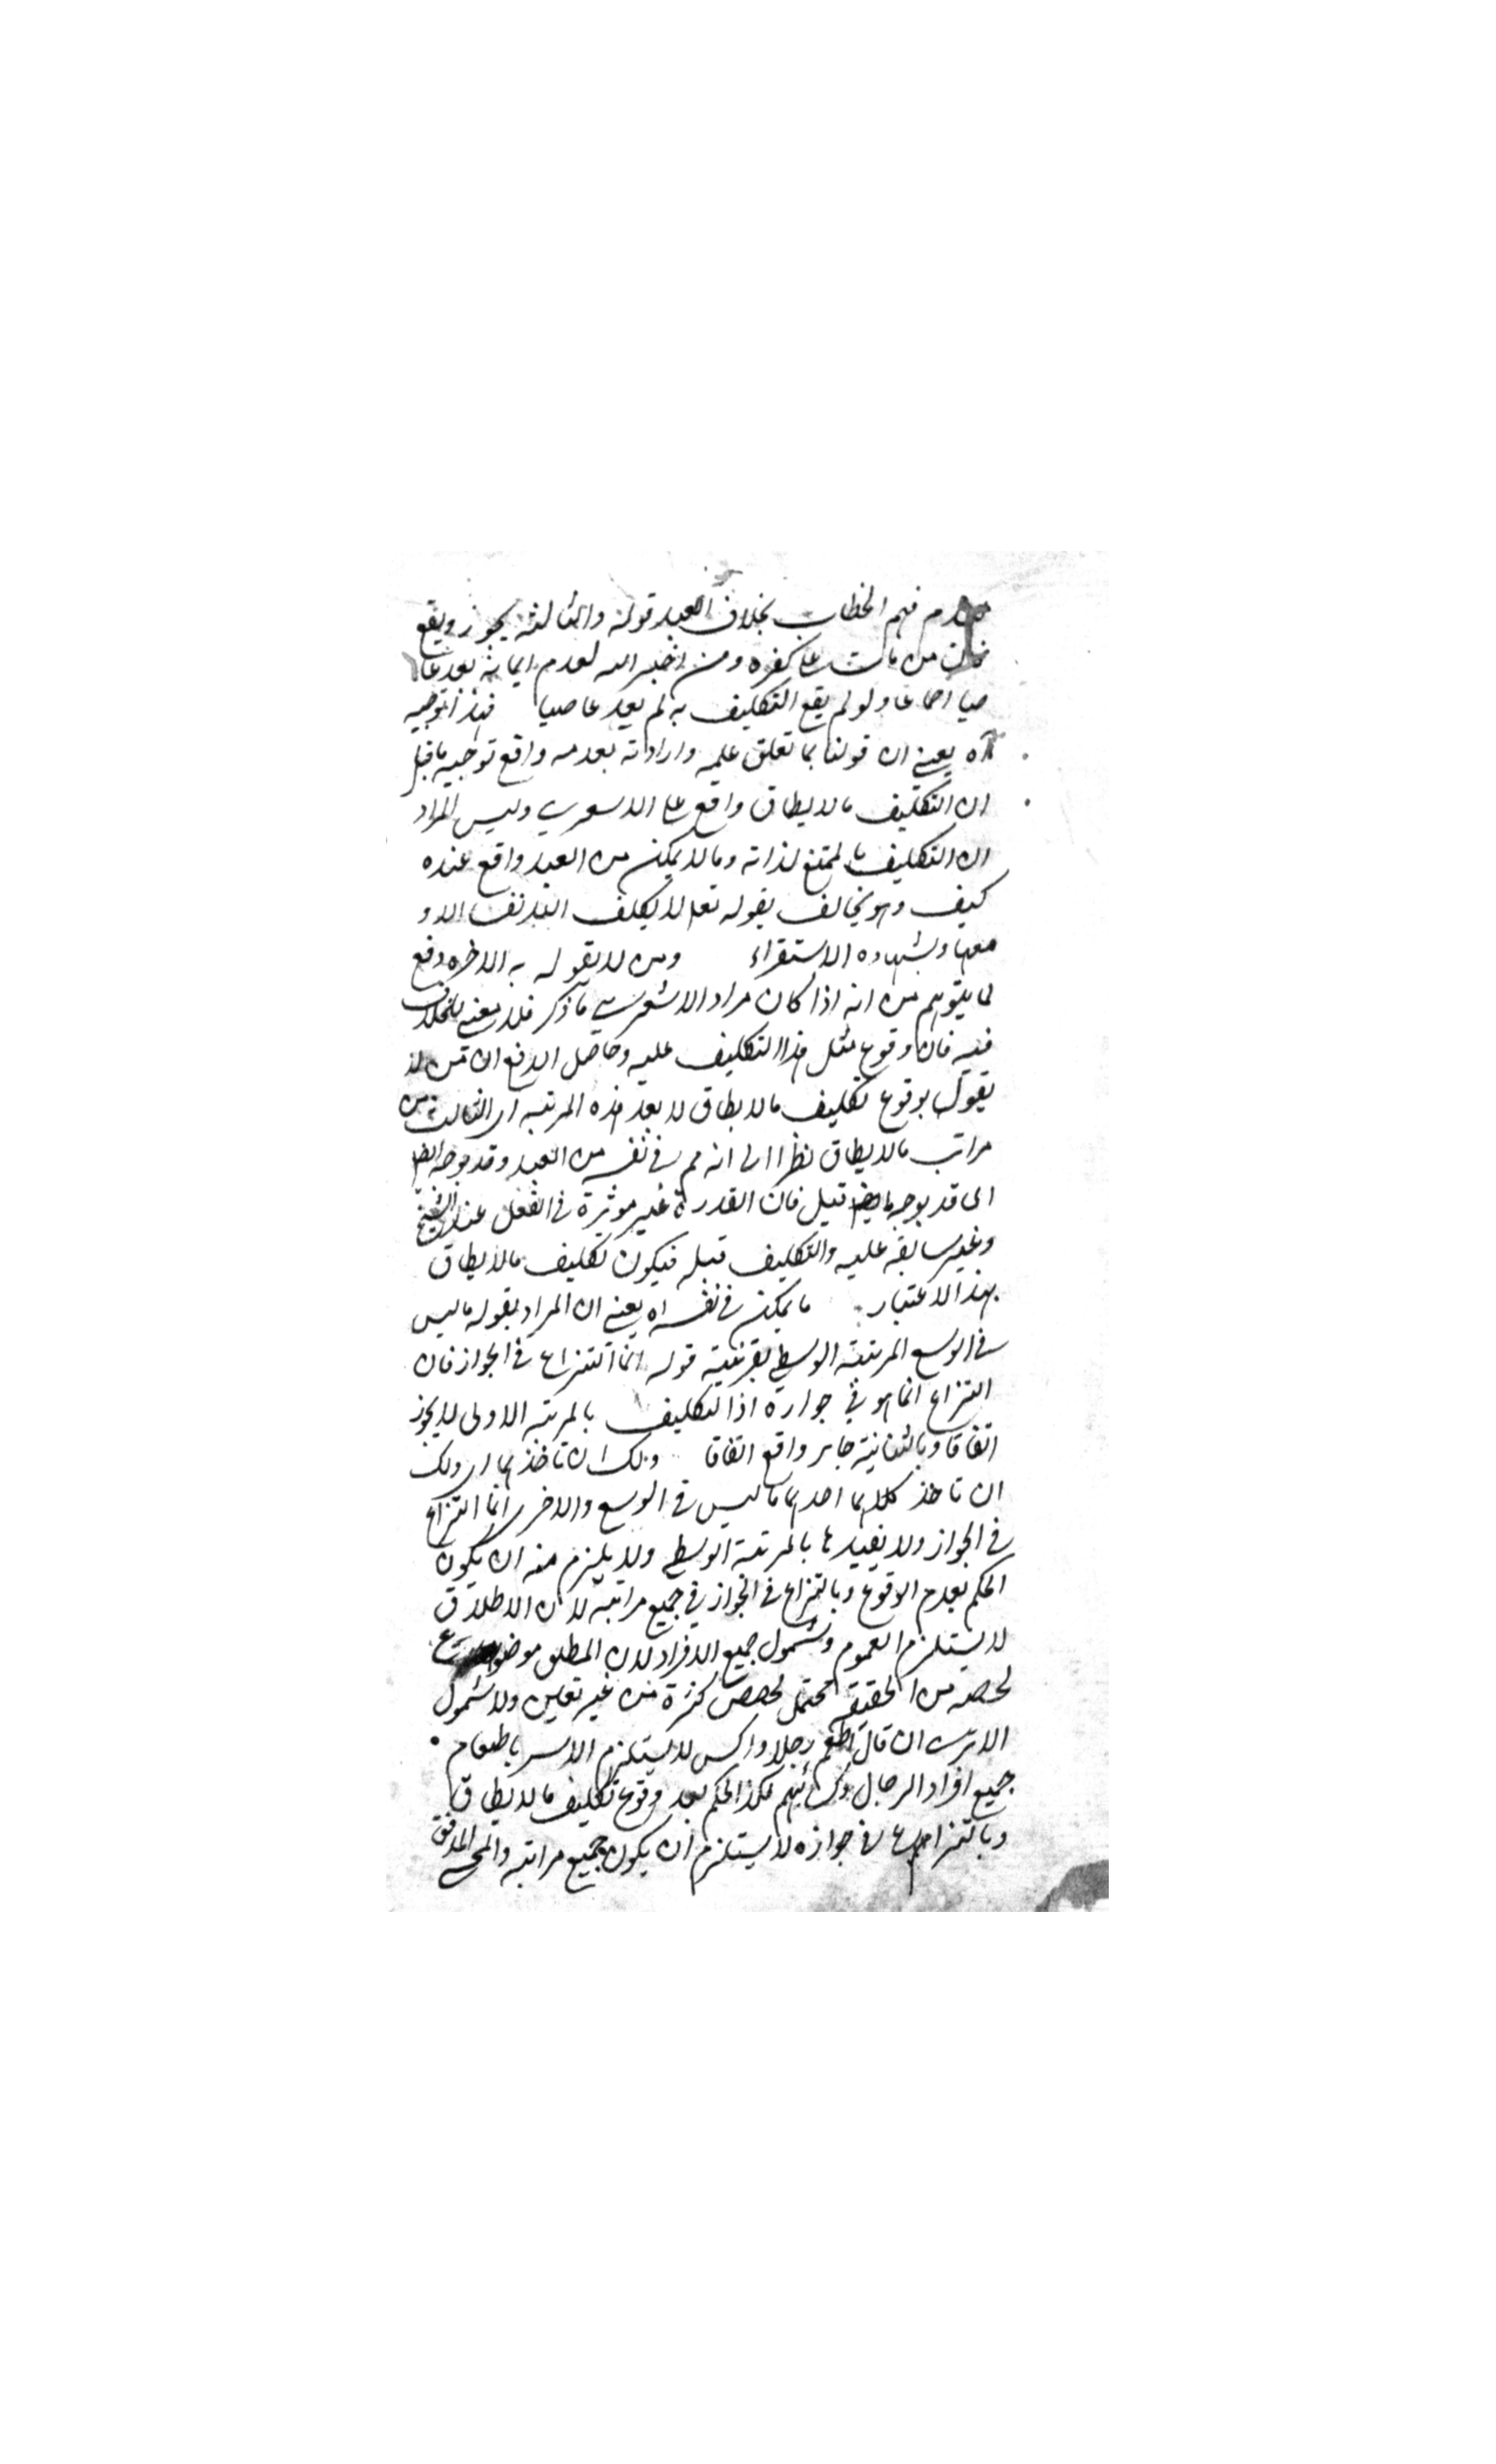 عدم فهم الخطاب بخلاف العبد قوله والثالثة يجوز ويقع
فان من مات على كفره ومن اخبر الله لعدم ايمانه يعد عا
صيا اجماعا ولو لم يقع التكليف به لم يعد عاصيا فهذا توجيه
آه يعني ان قولنا بما تعلق علمه وارادته بعدمه واقع توجيه ما قيل
ان التكليف مالا يطاق واقع على الاشعري وليس المراد
ان التكليف بالممتنع لذاته ومالا يمكن من العبد واقع عنده
كيف وهو يخالف بقوله تعالى لا يكلف الله نفسا الا و
سعها وبشهاده الاستقراء ومن لا يقول به الاخره دفع
لما يتوهم من انه اذا كان مراد الاشعري ما ذكر فلا معنى للخلاف
فيه فان وقوع مثل هذا التكليف عليه وحاصل الدفع ان من لا
يقول بوقوع تكليف مالا يطاق لا يعد هذه المرتبه اى الثالث من
مراتب مالا يطاق نظرا الى انه مم في نفسه من العبد وقد يوجه ايضا
اى قد يوجه ما قيل فان القدرة غير موثرة في الفعل عند الشيخ
وغير سابقه عليه والتكليف قبله فيكون تكليف مالا يطاق
بهذا الاعتبار ما يمكن في نفسه اه يعني ان المراد بقوله ما ليس
في الوسع المرتبة الوسطى بقرينية قوله انما النزاع في الجواز فان
النزاع انما هو في جوازه اذا لتكليف بالمرتبه الاولى لا يجوز
اتفاقا وبالثانية جايز واقع اتفاقا ولك ان تاخذهما اى ولك
ان تاخذ كلاهما احدهما ما ليس في الوسع والاخر انما النزاع
في الجواز ولا تقيدها بالمرتبة الوسطى ولا يلزم منه ان يكون
الحكم بعدم الوقوع وبالنزاع في الجواز في جميع مراتبه لان الاطلاق
لا يستلزم العموم وشمول جميع الافراد لان المطلق موضوع
لحصه من الحقيقه تحتمل لحصص كثرة من غير تعيين ولا شمول
الا ترى ان قال اطعم رجلا واكس لا يستلزم الامر باطعام
جميع افراد الرجال وكسائهم فكذا الحكم بعد وقوع تكليف مالا يطاق
وبالنزاع في جوازه لا يستلزم ان يكون جميع مراتبه والمحشي المدقق